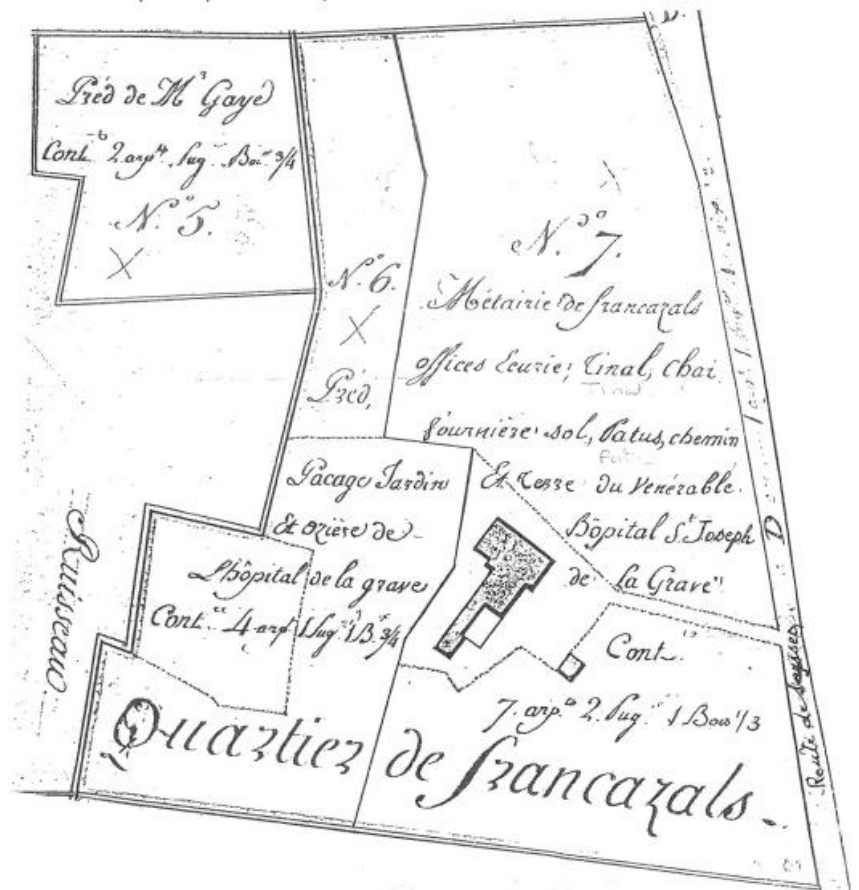 Préd de Mʳ Gayé
Contᶜᵉ 2 arpᵗˢ Pugʳᵉ Boiˣ 3/4
N.º 5.
X
N.º 6.
X
Préd,
N.º 7.
Métairie de francazals
offices Ecurie, Tinal, Chai
fournière sol, Patus, chemin
Et Terre du Venérable
hôpital Sᵗ Joseph
de La Grave
Cont.
7. arpˢ 2. Pugʳ 1 Bois 1/3
Pacage Jardin
Et ozière de
L'hôpital de la grave
Cont. 4 arpˢ 1 Pugʳ 1 B.ˣ 3/4
Ruisseau
Quartier de francazals.
D
Route de Seysses